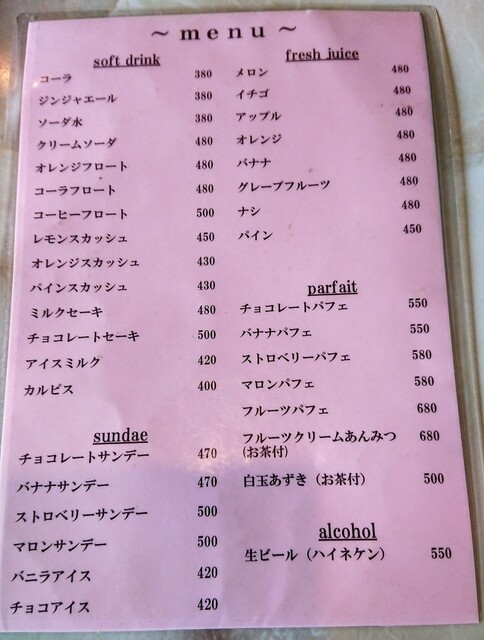 ～menu～
soft drink
コーラ 380
ジンジャエール 380
ソーダ水 380
クリームソーダ 480
オレンジフロート 480
コーラフロート 480
コーヒーフロート 500
レモンスカッシュ 450
オレンジスカッシュ 430
パインスカッシュ 430
ミルクセーキ 480
チョコレートセーキ 500
アイスミルク 420
カルピス 400
sundae
チョコレートサンデー 470
バナナサンデー 470
ストロベリーサンデー 500
マロンサンデー 500
バニラアイス 420
チョコアイス 420
fresh juice
メロン 480
イチゴ 480
アップル 480
オレンジ 480
バナナ 480
グレープフルーツ 480
ナシ 480
パイン 450
parfait
チョコレートパフェ 550
バナナパフェ 550
ストロベリーパフェ 580
マロンパフェ 580
フルーツパフェ 680
フルーツクリームあんみつ 680
(お茶付)
白玉あずき（お茶付） 500
alcohol
生ビール（ハイネケン） 550